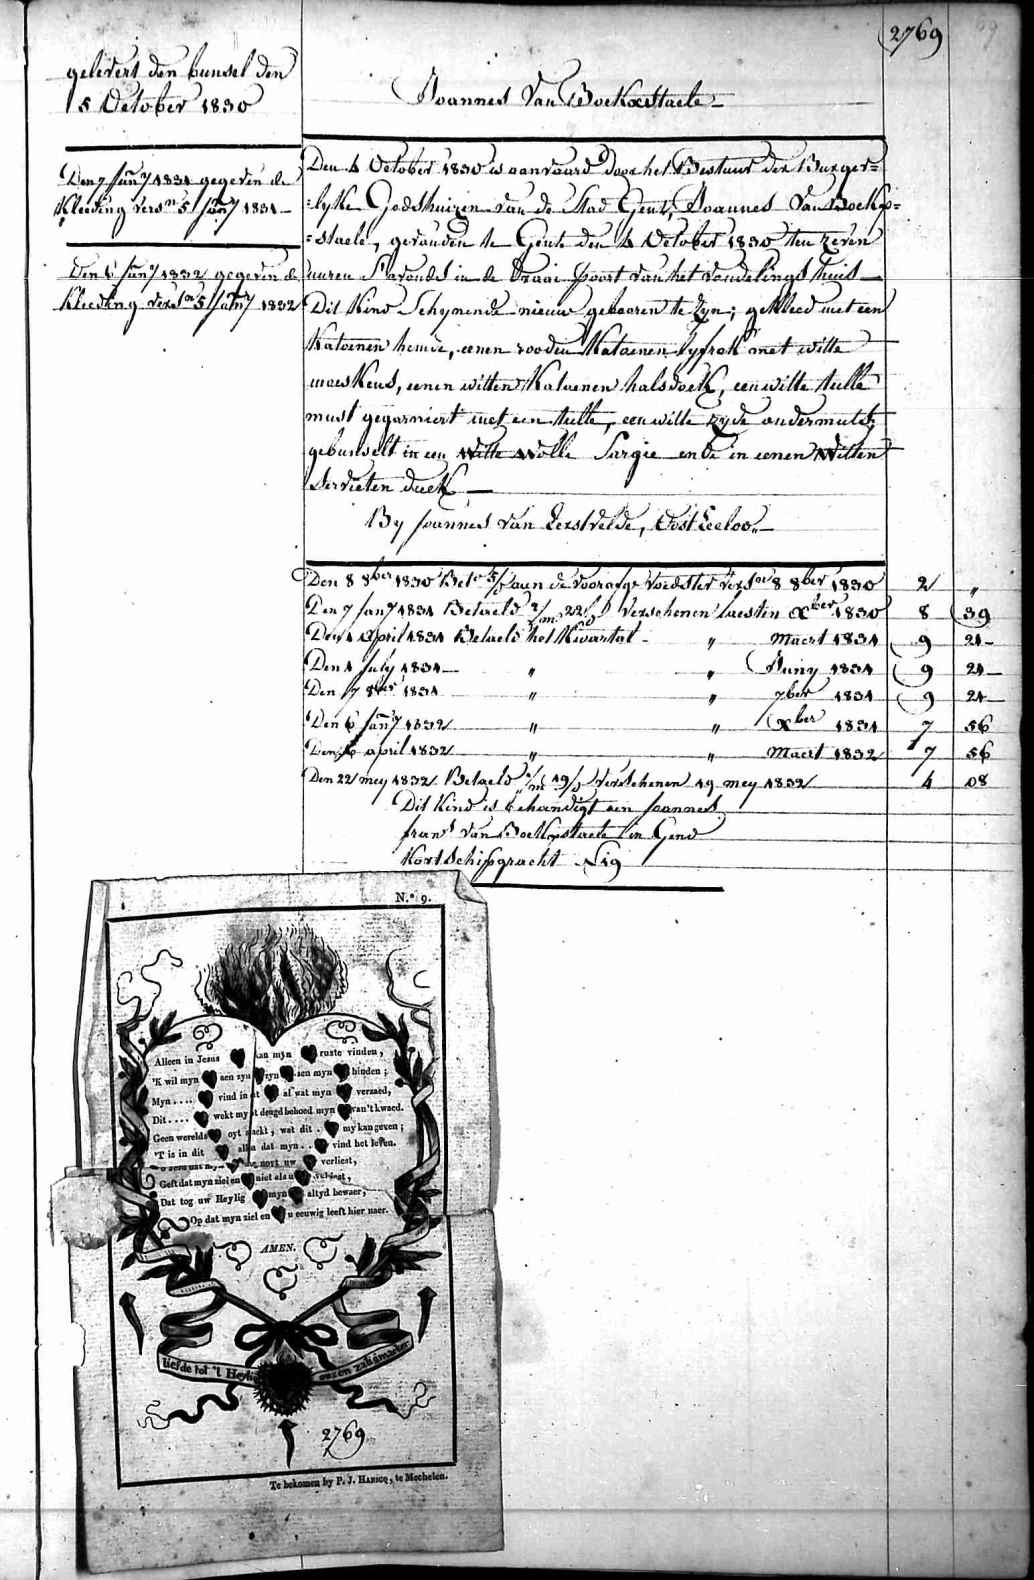 2769
gelevert den bunsel den
5 October 1830
Joannes Van Boekxstaele
Den 7 Janry 1831 gegeven de
Kleeding versn 5 Janry 1831
Den 6 Janry 1832 gegeven de
Kleeding versn 5 Janry 1832
Den 4 October 1830 is aanvaard door het Bestuur der Burger=
=lyke Godshuizen van de Stad Gent, Joannes Van Boekx=
=staele, gevonden te Gent den 4 October 1830 ten zeven
uuren s'avonds in de draai poort van het vondelings huis
Dit Kind Schynende nieuw gebooren te zyn; gekleed met een
Katoenen hemde, eenen rooden Katoenen lyfrok met witte
mouskens, eenen witten Katoenen halsdoek, een witte tulle
must gegarniert met een tulle, een witte zyde ondermuts
gebunselt in een Witte Wolle Sargie ende in eenen Witten
Servieten doek
By Joannes van Eerstvelde, Oost Eecloo
Den 8 8ber 1830 aan de voorafge voedster versn 8 8ber 1830 2 "
Den 7 Janry 1831 Betaeld 2/m 22/d verschenen laesten Xber 1830 8 39
Den 1 April 1831 Betaeld het Kwartal " Maert 1831 9 24
Den 1 July 1831 " " Juny 1831 9 24
Den 7 8ber 1831 " " 7ber 1831 9 24
Den 6 Janry 1832 " " Xber 1831 7 56
Den 6 april 1832 " " Maert 1832 7 56
Den 22 mey 1832 Betaeld 1/m 19/d verschenen 19 mey 1832 4 08
Dit Kind is behandigt aen Joannes
frans van Boekxstaele in Gend
Kort Schipgracht N 19
N.° 9.
Alleen in Jesus kan myn ruste vinden,
'K wil myn aen zyn zyn aen myn binden;
Myn .... vind in dat af wat myn verzaed,
Dit .... wekt my tot deugd behoed myn van't kwaed.
Geen werelds oyt smackt, wat dit . my kan geven;
'T is in dit allen dat myn . . vind het leven.
nort uw verliest,
Geft dat myn ziel en niet als u verkiest,
Dat tog uw Heylig myn altyd bewaer,
Op dat myn ziel en u eeuwig leeft hier naer.
AMEN.
liefde tot 't Heylig onzen zaligmaeker
2769
Te bekomen by P. J. HANICQ, te Mechelen.